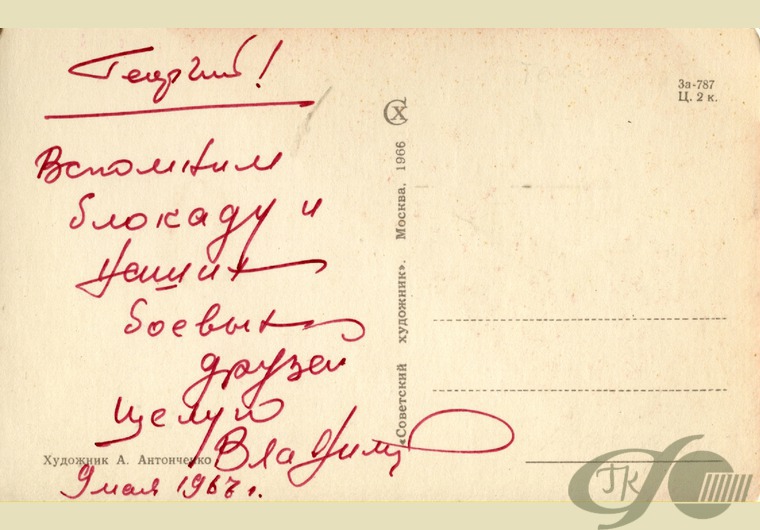 Георгий!
Вспомним
блокаду и
наших
боевых
друзей
Целую
Владимир
9 мая 1967 г.
Художник А. Антонченко
«Советский художник». Москва, 1966
СХ
За-787
Ц. 2 к.
ГК